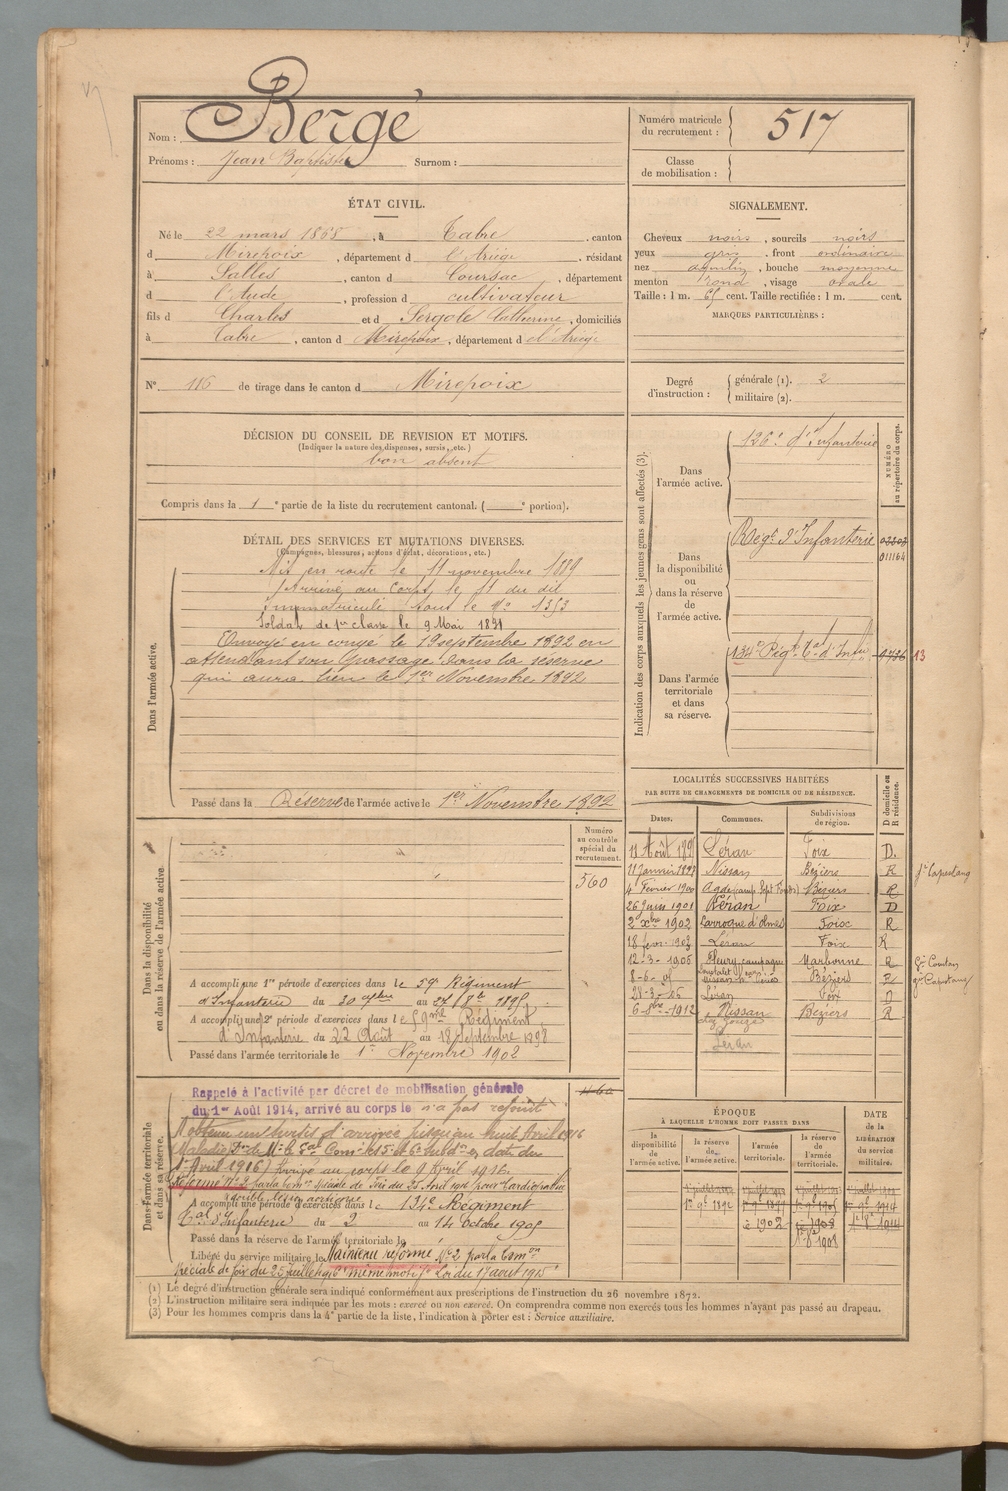 Nom : Bergé
Prénoms : Jean Baptiste Surnom :
Numéro matricule du recrutement : 517
Classe de mobilisation :
ÉTAT CIVIL.
Né le 22 mars 1868, à Tabre, canton
d Mirepoix, département d l'Ariège, résidant
à Salles, canton d Coursac, département
d l'Aude, profession d cultivateur
fils d Charles et d Sergole Catherine, domiciliés
à Tabre, canton d Mirepoix, département d el'Ariège
N° 116 de tirage dans le canton d Mirepoix
SIGNALEMENT.
Cheveux noirs, sourcils noirs
yeux gris, front ordinaire
nez aquilin, bouche moyenne
menton rond, visage ovale
Taille : 1 m. 65 cent. Taille rectifiée : 1 m. cent.
MARQUES PARTICULIÈRES :
Degré d'instruction : générale (1). 2
militaire (2).
DÉCISION DU CONSEIL DE REVISION ET MOTIFS.
(Indiquer la nature des dispenses, sursis, etc.)
bon absent
Compris dans la 1e partie de la liste du recrutement cantonal. ( e portion).
DÉTAIL DES SERVICES ET MUTATIONS DIVERSES.
(Campagnes, blessures, actions d'éclat, décorations, etc.)
Dans l'armée active.
Mis en route le 11 novembre 1889
Arrivé au Corps le 11 du dit
Immatriculé sous le No 1353
Soldat de 1re classe le 9 Mai 1891
Envoyé en congé le 19 septembre 1892 en
attendant son passage dans la réserve
qui aura lieu le 1er Novembre 1892
Passé dans la Réserve de l'armée active le 1er Novembre 1892
Indication des corps auxquels les jeunes gens sont affectés (3).
NUMÉRO au répertoire du corps.
Dans l'armée active.
126e d'Infanterie
Dans la disponibilité ou dans la réserve de l'armée active.
Regt d'Infanterie
011164
Dans l'armée territoriale et dans sa réserve.
134e Régt Tal d'Infie 9736 13
LOCALITÉS SUCCESSIVES HABITÉES
PAR SUITE DE CHANGEMENTS DE DOMICILE OU DE RÉSIDENCE.
Dates. Communes. Subdivisions de région. D domicile ou R résidence.
11 Août 1895 Léran Foix D.
11 Janvier 1898 Nissan Béziers R
4 Février 1900 Agde Béziers R
26 Juin 1901 Léran Foix D
2 Xbre 1902 Larroque d'olmes Foix R
18 févr. 1903 Léran Foix R
12-3-1905 Fleury Narbonne R
Béziers R
Léran Foix D
1912 Nissan Béziers R
Léran
Dans la disponibilité ou dans la réserve de l'armée active.
Numéro au contrôle spécial du recrutement.
560
A accompli une 1re période d'exercices dans le 59e Régiment
d'Infanterie du 30 au 27 8bre 1895.
A accompli une 2e période d'exercices dans le 59me Régiment
d'Infanterie du 22 Août au 18 Septembre 1898
Passé dans l'armée territoriale le 1er Novembre 1902
Dans l'armée territoriale et dans sa réserve.
Rappelé à l'activité par décret de mobilisation générale
du 1er Août 1914, arrivé au corps le n'a pas rejoint
A obtenu un sursis d'arrivée jusqu'au huit Avril 1916
1er Avril 1916) Arrivé au corps le 9 Avril 1916.
Réformé No 2 par la Comon spéciale de Foix du 25 Avril 1916 pour Cardiopathie
double lésion aortique
A accompli une période d'exercices dans le 134e Régiment
Tal d'Infanterie du 2 au 14 Octobre 1905
Passé dans la réserve de l'armée territoriale le
Libéré du service militaire le Maintenu réformé No 2 par la Comon
spéciale de Foix du 25 Juillet 1916 même motif Loi du 17 aout 1915
ÉPOQUE
À LAQUELLE L'HOMME DOIT PASSER DANS
la disponibilité de l'armée active. la réserve de l'armée active. l'armée territoriale. la réserve de l'armée territoriale. DATE de la LIBÉRATION du service militaire.
(1) Le degré d'instruction générale sera indiqué conformément aux prescriptions de l'instruction du 26 novembre 1872.
(2) L'instruction militaire sera indiquée par les mots : exercé ou non exercé. On comprendra comme non exercés tous les hommes n'ayant pas passé au drapeau.
(3) Pour les hommes compris dans la 4e partie de la liste, l'indication à porter est : Service auxiliaire.